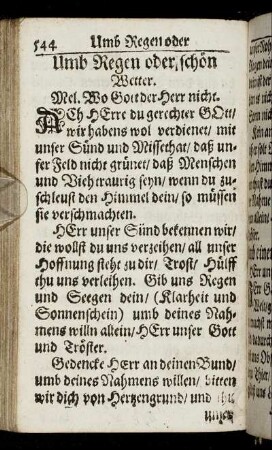 544 Umb Regen oder
Umb Regen oder schön
Wetter.
Mel. Wo Gott der Herr nicht.
ACh HErre du gerechter GOtt/
wir habens wol verdienet/ mit
unser Sünd und Missethat/ daß un-
ser Feld nicht grünet/ daß Menschen
und Vieh traurig seyn/ wenn du zu-
schleust den Himmel dein/ so müssen
sie verschmachten.
HErr unser Sünd bekennen wir/
die wollst du uns verzeihen/ all unser
Hoffnung steht zu dir/ Trost/ Hülff
thu uns verleihen. Gib uns Regen
und Seegen dein/ (Klarheit und
Sonnenschein) umb deines Nah-
mens willn allein/ HErr unser Gott
und Tröster.
Gedencke HErr an deinen Bund/
umb deines Nahmens willen/ bitten
wir dich von Hertzengrund/ und